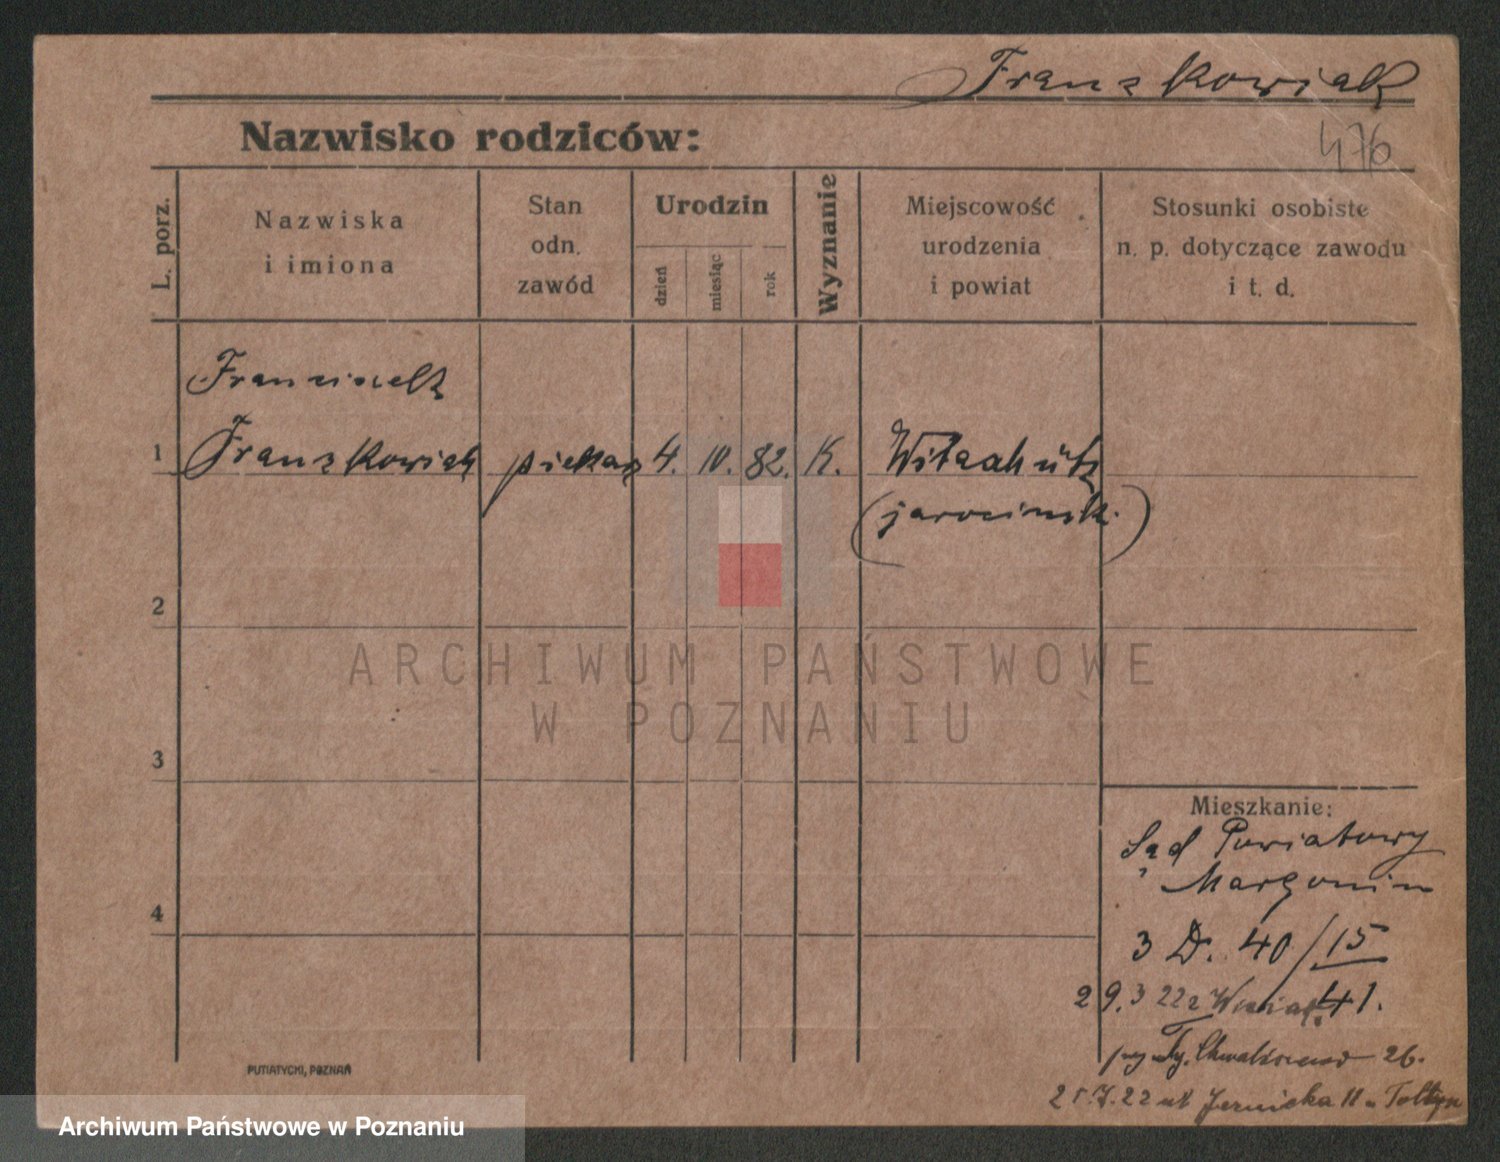 Franzkowiak
Nazwisko rodziców:
476
L. porz.
Nazwiska
i imiona
Stan
odn.
zawód
Urodzin
dzień
miesiąc
rok
Wyznanie
Miejscowość
urodzenia
i powiat
Stosunki osobiste
n. p. dotyczące zawodu
i t. d.
Franciszek
1 Franzkowiak piekarz 4. 10. 82. K. Witaschütz
(jarocinsk.)
2
ARCHIWUM PAŃSTWOWE
W POZNANIU
3
Mieszkanie:
Sąd Powiatowy
Margonin
4
3 D. 40/15
29.3 22 z 41.
26.
22 11
PUTIATYCKI, POZNAŃ
Archiwum Państwowe w Poznaniu